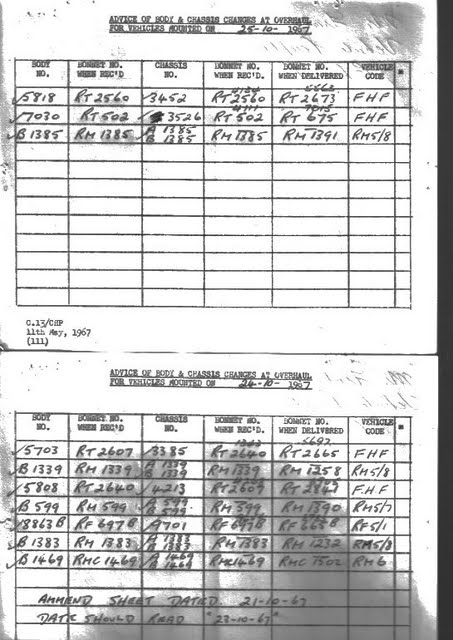 ADVICE OF BODY & CHASSIS CHANGES AT OVERHAUL
FOR VEHICLES MOUNTED ON 25-10-1967
BODY NO. BONNET NO. WHEN REC'D. CHASSIS NO. BONNET NO. WHEN REC'D. BONNET NO. WHEN DELIVERED VEHICLE CODE *
✓5818 RT2560 ✓3452 RT2560 RT2673 FHF
✓7030 RT502 3526 RT502 RT675 FHF
✓B1385 RM1385 A1385 B1385 RM1385 RM1391 RM5/8
C.13/CHP
11th May, 1967
(111)
ADVICE OF BODY & CHASSIS CHANGES AT OVERHAUL
FOR VEHICLES MOUNTED ON 24-10-1967
BODY NO. BONNET NO. WHEN REC'D. CHASSIS NO. BONNET NO. WHEN REC'D. BONNET NO. WHEN DELIVERED VEHICLE CODE *
✓5703 RT2607 ✓3385 RT2640 RT2665 FHF
✓B1339 RM1339 A1339 B1339 RM1339 RM1258 RM5/8
✓5808 RT2640 ✓4213 RT2607 F.H.F
✓B599 RM599 A599 B599 RM599 RM1390 RM5/7
✓8863B RF697B ✓A701 RF697B RF5/1
✓B1383 RM1383 A1383 B1383 RM1383 RM1232 RM5/8
✓B1469 RMC1469 A1469 B1469 RMC1469 RMC1502 RM6
AMMEND SHEET DATED 21-10-67
DATE SHOULD READ "23-10-67"